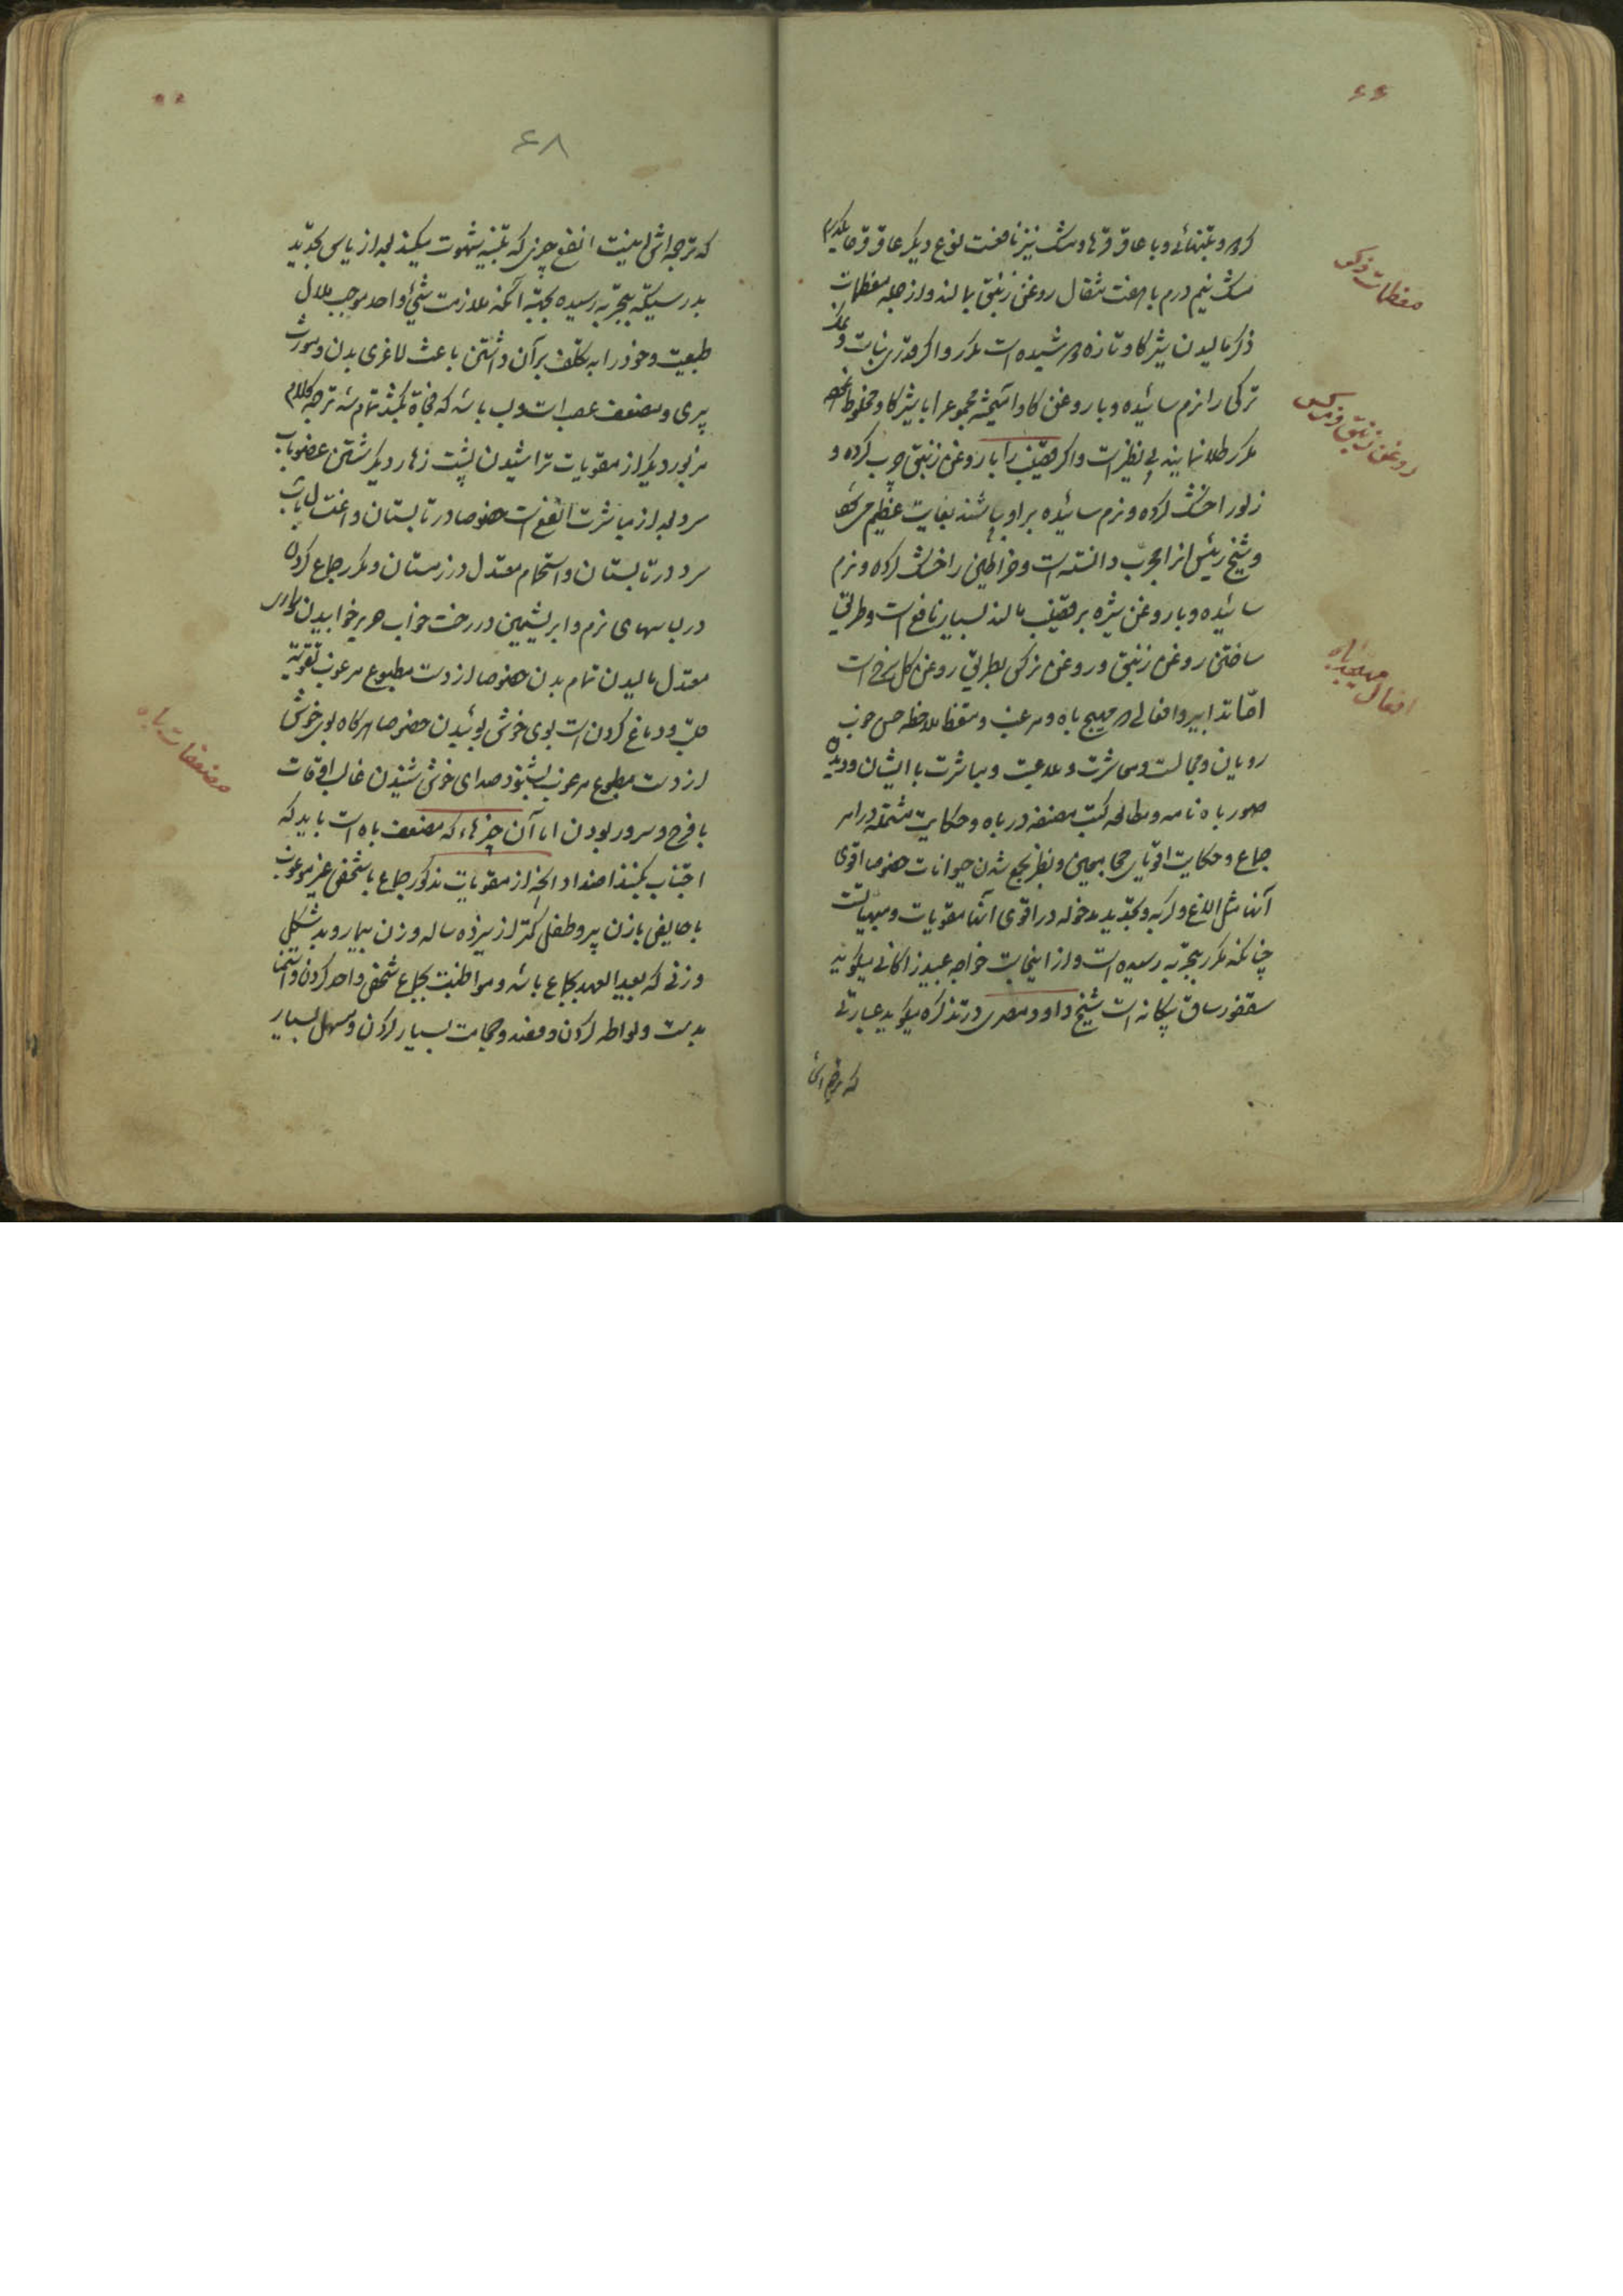 ۶۶
کرده و بتنهائی و با عاقرقرحا و مشک نیز نافعست نوع دیگر عاقرقرحا یکدرم
مشک نیم درم با هفت مثقال روغن زنبق بمالند و از جمله معظمات
ذکر مالیدن شیر کاو تازه دوشیده است مکرر و اکر قدری نبات و نمک
ترکی را نرم سائیده و با روغن کاو آمیخته مجموع را با شیر کاو مخلوط
مکرر طلا نمایند بی نظیر است و اکر قضیب را با روغن زنبق چرب کرده و
زلو را خشک کرده و نرم سائیده بر او بپاشند بغایت عظیم میکند
و شیخ رئیس انرا مجرب دانسته است و خراطین را خشک کرده و نرم
سائیده و با روغن شیره بر قضیب مالند بسیار نافع است و طریق
ساختن روغن زنبق و روغن نرکس بطریق روغن کل سرخ است
اما تدابیر و افعالی که مهیج باه و مرغب و منعظ ملاحظه حسن خوب
رویان و مجالست و معاشرت و ملاعبت و مباشرت با ایشان و دیدن
صور باه نامه و مطالعه کتب مصنفه در باه و حکایت مشتمله در امر
جماع و حکایت اقویای مجامعین و بنظر جمع شدن حیوانات خصوصا اقوی
آنها مثل الاغ و کربه و تجدید مدخوله در اقوی اثنا مقویات و مهیجات
چنانکه مکرر بتجربه رسیده است و از اینجاست خواجه عبید زاکانی میکوید
سقنقور ساق بیکانه است شیخ داود مصری در تذکره میکوید عبارتی
که ترجمه اش
معظمات ذکر
روغن زنبق و نرکس
افعال مهیجه باه
۶۸
که ترجمه اش اینست انفع چیزی که تنبیه شهوت میکند بعد از یاس تجدید
بدرستیکه بتجربه رسیده بجهة آنکه ملازمت شیئ واحد موجب ملال
طبیعت و خود را به تکلف بر آن داشتن باعث لاغری بدن و مورث
پیری و مضعف عصب است و بسا باشد که فجاة بکشد تمام شد ترجمه کلام
مزبور و دیکر از مقویات تراشیدن پشت زهار و دیکر شستن عضو باب
سرد بعد از مباشرت انفع است خصوصا در تابستان و اغتسال باب
سرد در تابستان و استحمام معتدل در زمستان و مکرر جماع کردن
در لباسهای نرم و ابریشمین در رخت خواب حریر خوابیدن
معتدل مالیدن تمام بدن خصوصا از دست مطبوع مرغوب تقویة
قلب و دماغ کردن است بوی خوش بوئیدن خصوصا هرکاه بوی خوش
از دست مطبوع مرغوب بشنود صدای خوش شنیدن غالب اوقات
با فرح و سرور بودن اما آن چیزها که مضعف باه است باید که
اجتناب بکنند اضداد انچه از مقویات مذکور جماع با شخص غیر مرغوب
با حایض با زن پیر و طفل کمتر از سیزده ساله و زن بیمار و بد شکلی
و زنی که بعید العهد بجماع باشد و مواظبت بجماع شخص واحد کردن و استمنا
بدست و لواطه کردن و فصد و حجامت بسیار کردن و مسهل بسیار
مضعفات باه